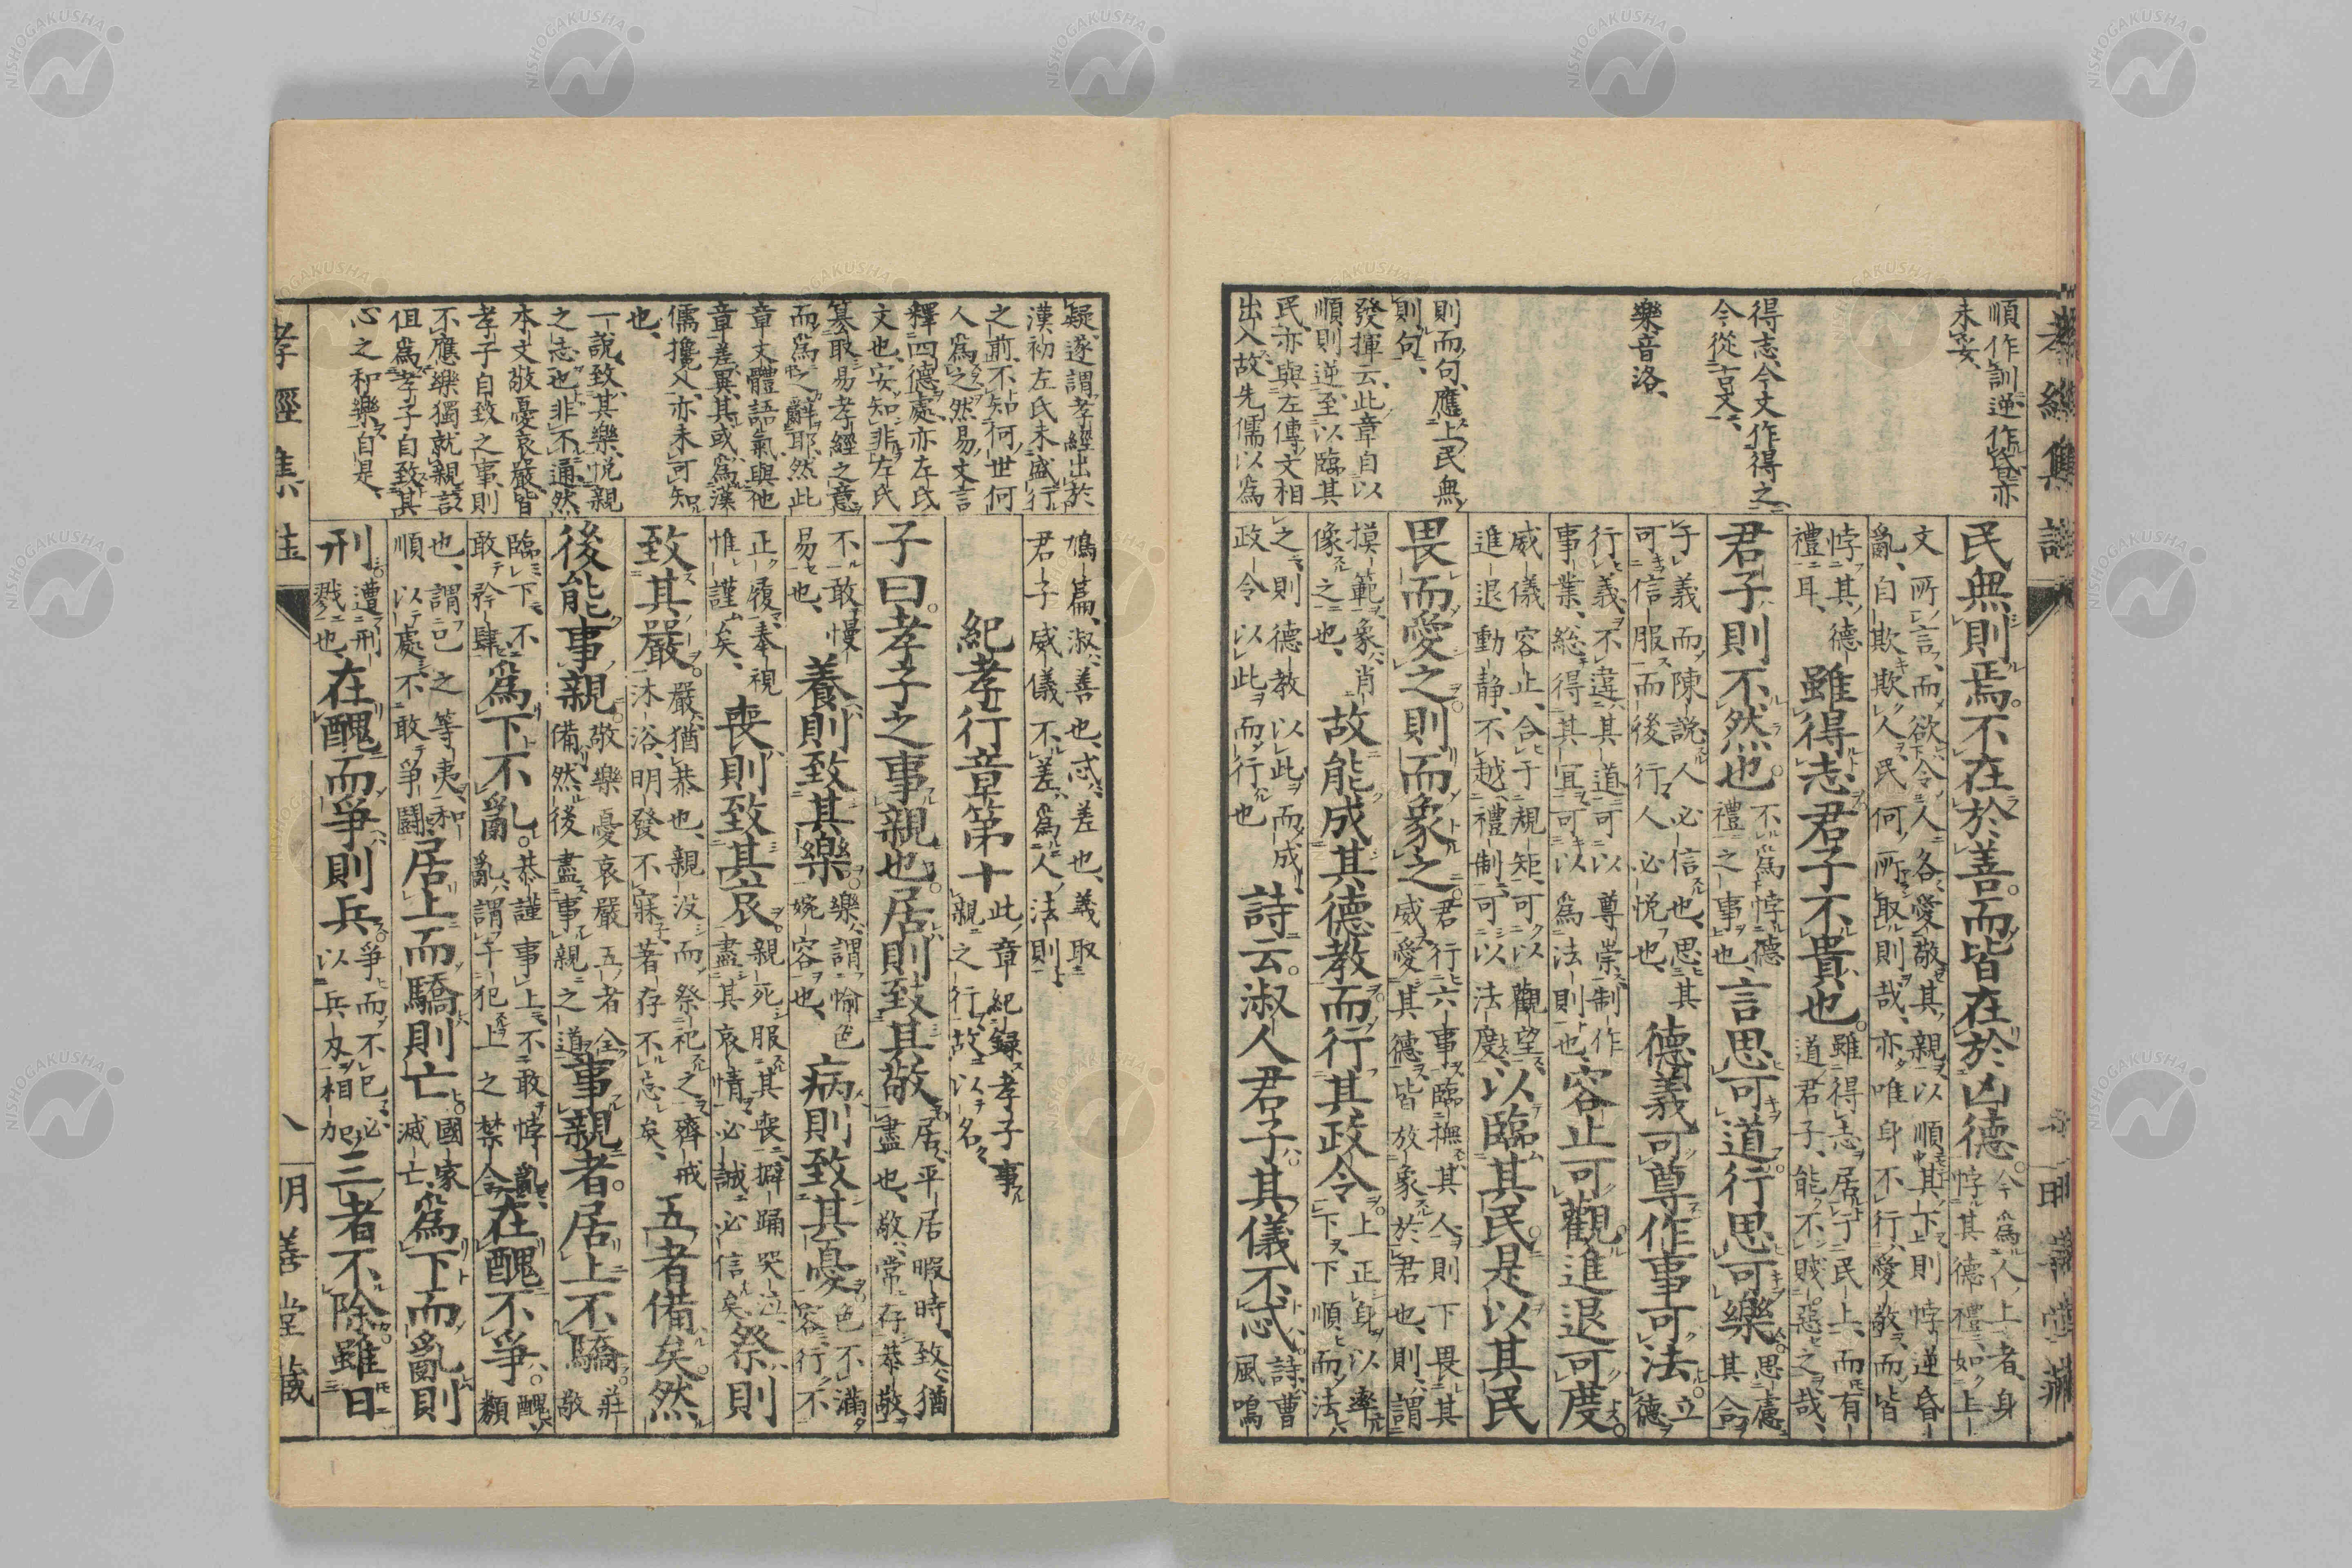 孝經集註
順作訓逆作昏亦
未妥
得志今文作得之
今從古文
樂音洛
則而句應上民無
則句
發揮云此章自以
順則逆至以臨其
民亦與左傳文相
出入故先儒以為
民無則焉。不在於善。而皆在於凶德。今為人上者身悖其德禮如上
文所言、而欲令人各愛敬其親以順其下則悖逆昏
亂、自欺欺人、民何所取則哉、亦唯身不行愛敬而皆
悖其德禮耳、雖得志君子不貴也。雖得志居于民上、而有道君子能不賤惡之哉、
君子則不然也。不為悖德禮之事也、言思可道行思可樂。思慮其合
于義而陳說人必信也、思其可信服而後行人必悅也、德義可尊作事可法。立德
行義不違其道可以尊崇制作事業、総得其宜可以為法則也、容止可觀。進退可度。
威儀容止、合于規矩可以觀望進退動静、不越禮制可以法度、以臨其民。是以其民
畏而愛之。則而象之。君行六事臨撫其人則下畏其威愛其德皆放象於君也、則謂
摸範象肖像之也、故能成其德教。而行其政令。上正身以率下、下順而法
之則德教以此而成、政令以此而行也 詩云。淑人君子。其儀不忒。詩曹風鳴
疑遂謂孝經出於
漢初左氏未盛行
之前不知何世何
人為之然易文言
釋四德處亦左氏
文也安知非左氏
纂取易孝經之意
而為之辭耶然此
章文體語氣與他
章差異其或為漢
儒攙入亦未可知
也、
一說致其樂悅親
之志也非不通然
本文敬憂哀嚴皆
孝子自致之事則
不應樂獨就親言
但為孝子自致其
心之和樂自是、
鳩篇淑善也、忒差也、義取君子威儀不差、為人法則、
紀孝行章第十 此章紀録孝子事親之行故以名
子曰。孝子之事親也。居則致其敬 居、平居暇時、致猶盡也、敬常存恭敬
不敢慢易也、養則致其樂。樂謂愉色婉容也、病則致其憂。色不滿容行不
正履、奉視惟謹矣、喪則致其哀。親死服其喪、擗踊哭泣盡其哀情必誠必信矣、祭則
致其嚴。嚴猶恭也、親没而祭祀之齊戒沐浴、明發不寐著存不忘矣、五者備矣。然
後能事親 敬樂憂哀嚴五者全備、然後盡事親之道、事親者。居上不驕 莊敬
臨下、不敢矜肆 為下不亂。恭謹事上、不敢悖亂亂謂干犯上之禁令 在醜不爭。醜類
也、謂己之等夷、和順以處、不敢爭鬪 居上而驕則亡。國家滅亡、為下而亂則
刑 遭刑戮也、在醜而爭則兵。爭而不已、必以兵刄相加 三者不除。雖日
孝經集註
八
明善堂藏